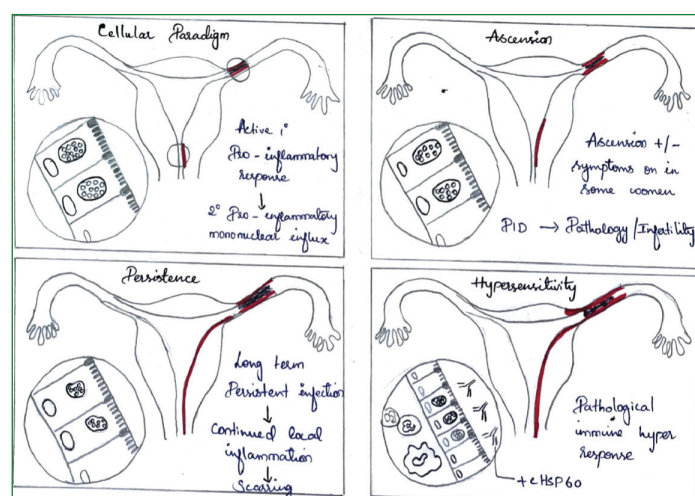 Cellular Paradigm
Active 1°
Pro-inflammatory
response
↓
2° Pro-inflammatory
mononuclear influx
Ascension
Ascension +/-
symptoms on in
some women
PID → Pathology/Infatility
Persistence
Long term
Persistent infection
↓
Continued local
inflammation
↓
Scarring
Hypersensitivity
Pathological
immune hyper
Response
+cHSP60